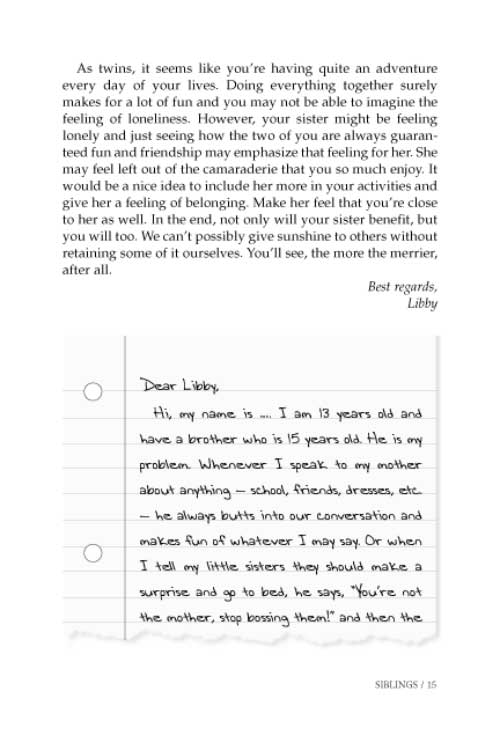 As twins, it seems like you're having quite an adventure
every day of your lives. Doing everything together surely
makes for a lot of fun and you may not be able to imagine the
feeling of loneliness. However, your sister might be feeling
lonely and just seeing how the two of you are always guaran-
teed fun and friendship may emphasize that feeling for her. She
may feel left out of the camaraderie that you so much enjoy. It
would be a nice idea to include her more in your activities and
give her a feeling of belonging. Make her feel that you're close
to her as well. In the end, not only will your sister benefit, but
you will too. We can't possibly give sunshine to others without
retaining some of it ourselves. You'll see, the more the merrier,
after all.
Best regards,
Libby
Dear Libby,
Hi, my name is .... I am 13 years old and
have a brother who is 15 years old. He is my
problem. Whenever I speak to my mother
about anything – school, friends, dresses, etc.
– he always butts into our conversation and
makes fun of whatever I may say. Or when
I tell my little sisters they should make a
surprise and go to bed, he says, "You're not
the mother, stop bossing them!" and then the
SIBLINGS / 15